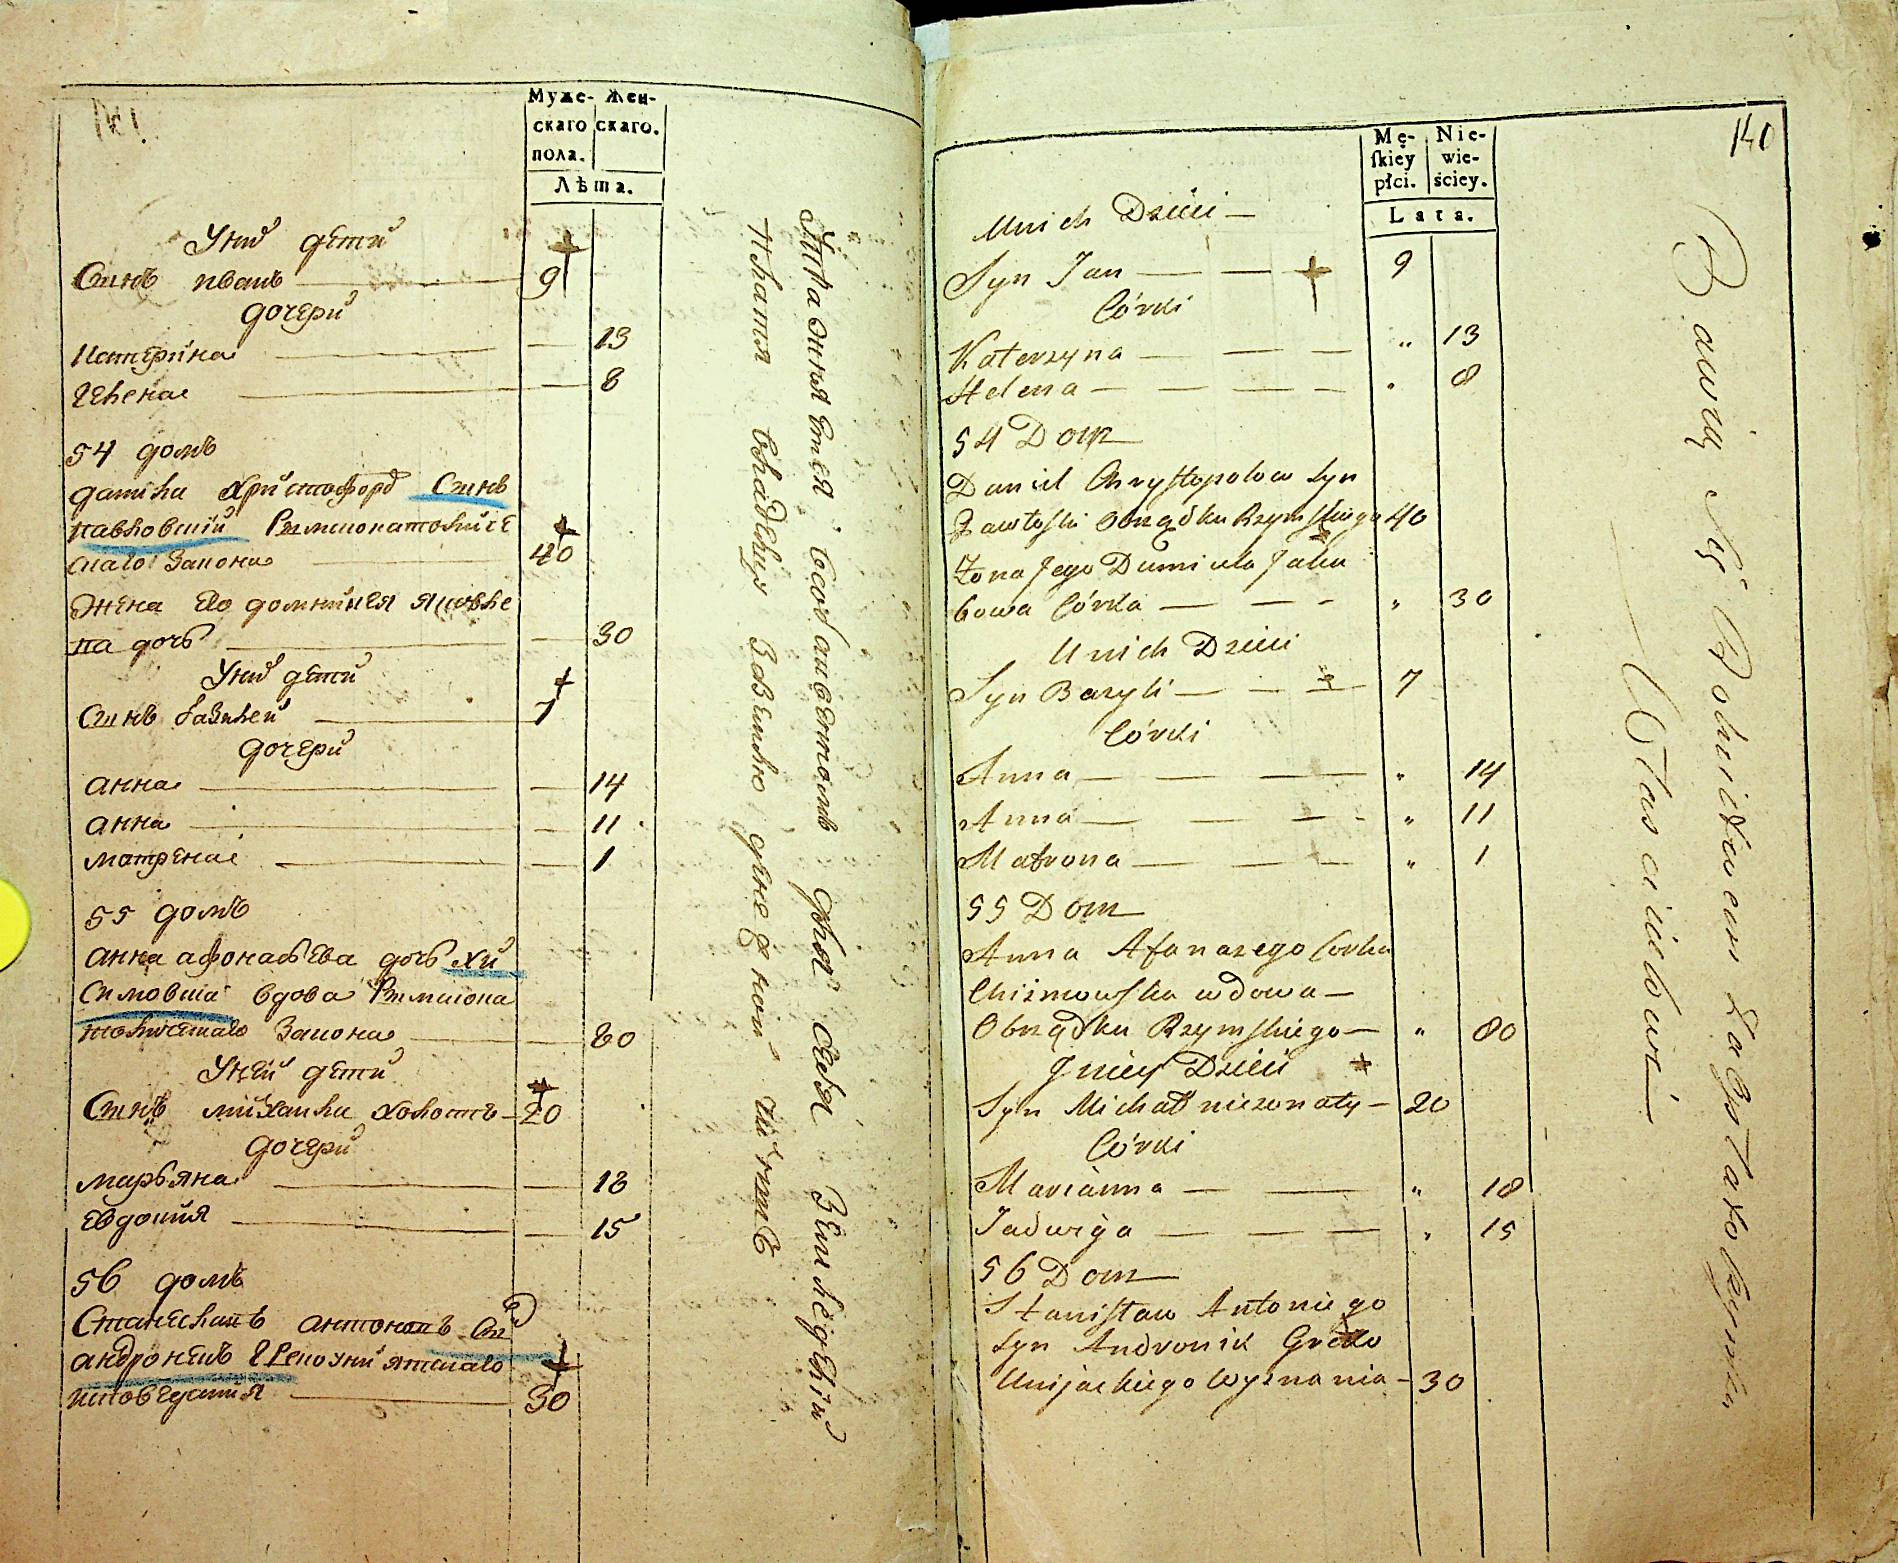 Муже-
скаго
пола.
Жен-
скаго.
Лѣта.
У них дети
Сынъ иванъ 9
дочери
Катерина 13
Елена 8
54 домъ
данила христофоров Сынъ
павловский Римскокатоличе
скаго Закона 40
Жена Его доминикя яковле
на дочь 30
У них дети
Сынъ базилей 7
дочери
анна 14
анна 11
матрена 1
55 домъ
анна афонасьева дочь хи
симовска вдова Римскока
толическаго Закона 80
У ней дети
Сынъ михаила холостъ 20
дочери
марьяна 18
Евдокия 15
56 домъ
Станеславъ антоновъ Сы
андроникъ Грекоуниятскаго
исповедания 30
140
Mę-
ſkiey
płci.
Nie-
wie-
ściey.
Lata.
U nich Dzieci
Syn Jan 9
Córki
Katerzyna " 13
Helena " 8
54 Dom
Daniel Chrysto­polow Syn
Pawłoſki Obrządku Rzymſkiego 40
Żona Jego Dumicela Jaku
bowa Córka " 30
U nich Dzieci
Syn Bazyli 7
Córki
Anna " 14
Anna " 11
Matrona " 1
55 Dom
Anna Afanazego Corka
Chiżmowſka wdowa
Obrządku Rzymſkiego " 80
U niey Dzieci
Syn Michał niezonaty 20
Córki
Marianna " 18
Jadwiga " 15
56 Dom
Staniſław Antoniego
Syn Andronik Greko
Unijackiego Wyznania 30